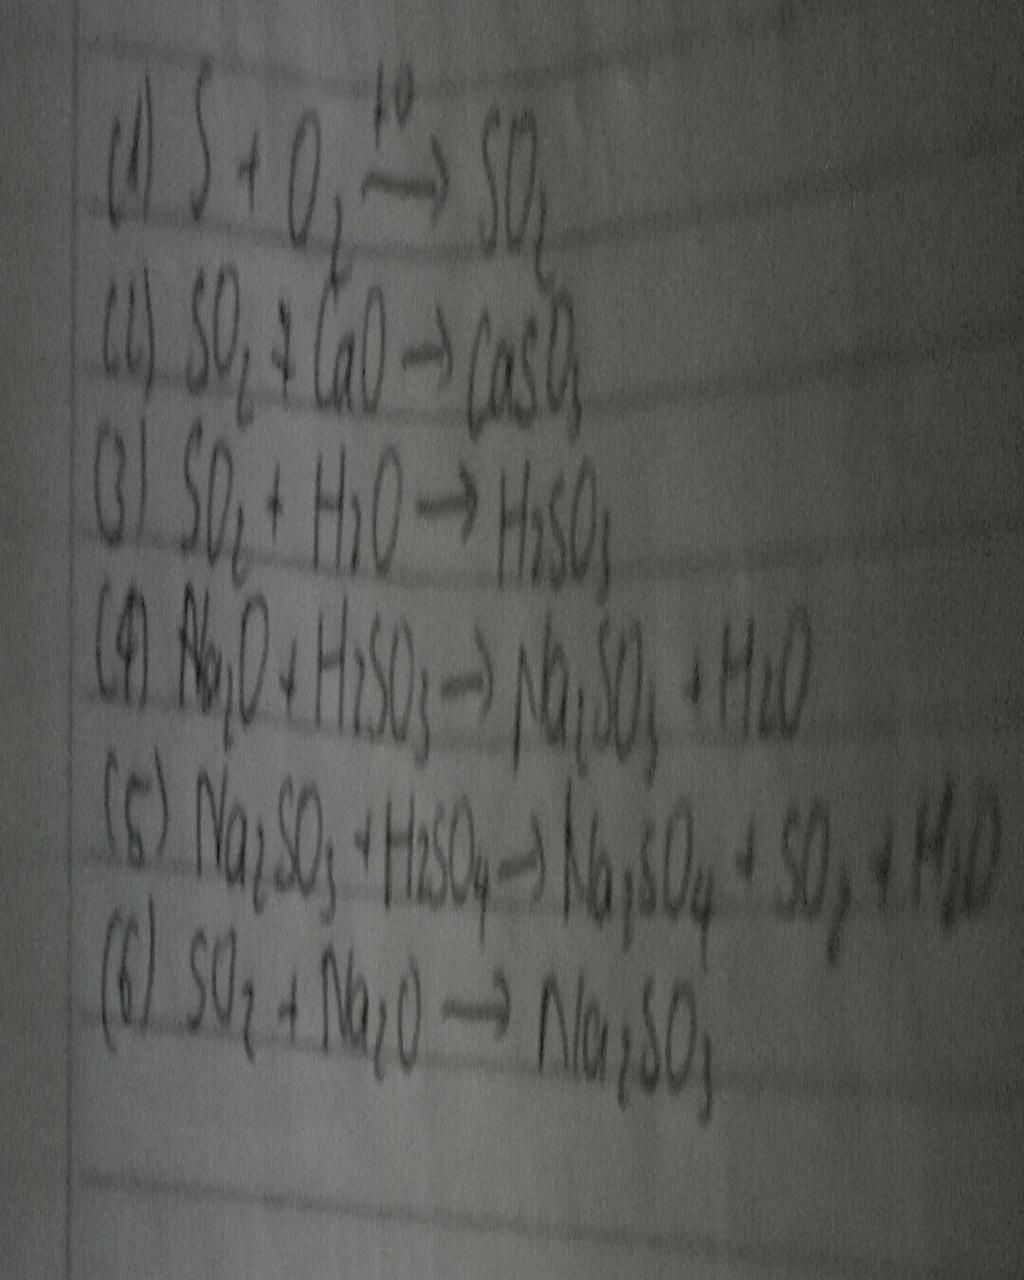 (1) S + O₂ →^{t0} SO₂
(2) SO₂ + CaO → CaSO₃
(3) SO₂ + H₂O → H₂SO₃
(4) Na₂O + H₂SO₃ → Na₂SO₃ + H₂O
(5) Na₂SO₃ + H₂SO₄ → Na₂SO₄ + SO₂ + H₂O
(6) SO₂ + Na₂O → Na₂SO₃